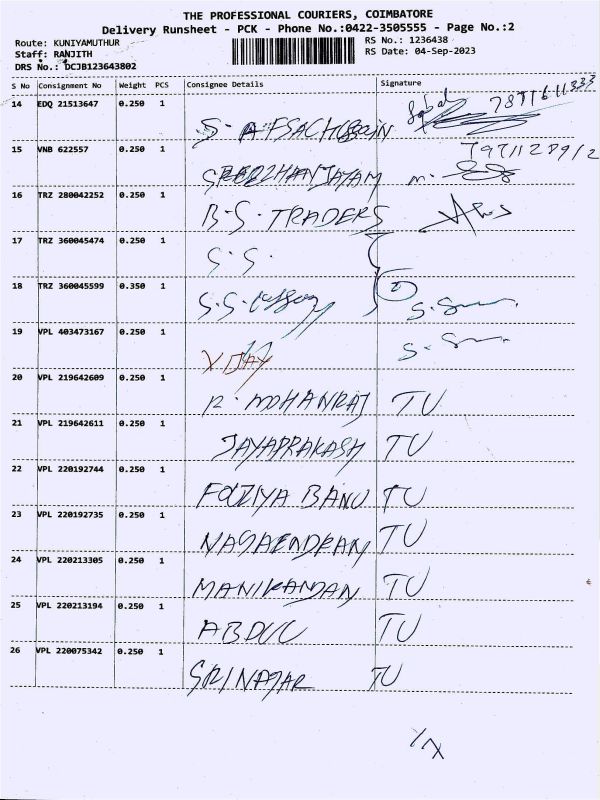 THE PROFESSIONAL COURIERS, COIMBATORE
Delivery Runsheet - PCK - Phone No.:0422-3505555 - Page No.:2
Route: KUNIYAMUTHUR
Staff: RANJITH
DRS No.: DCJB123643802
RS No.: 1236438
RS Date: 04-Sep-2023
S No Consignment No Weight PCS Consignee Details Signature
14 EDQ 21513647 0.250 1
15 VNB 622557 0.250 1
16 TRZ 280042252 0.250 1 B.S. TRADERS
17 TRZ 360045474 0.250 1 S.S.
18 TRZ 360045599 0.350 1 S.S.
19 VPL 403473167 0.250 1 VIJAY
20 VPL 219642609 0.250 1 R. MOHANRAJ TU
21 VPL 219642611 0.250 1 JAYAPRAKASH TU
22 VPL 220192744 0.250 1 FOUZIYA BANU TU
23 VPL 220192735 0.250 1 TU
24 VPL 220213305 0.250 1 MANIKANDAN TU
25 VPL 220213194 0.250 1 ABDUL TU
26 VPL 220075342 0.250 1 TU